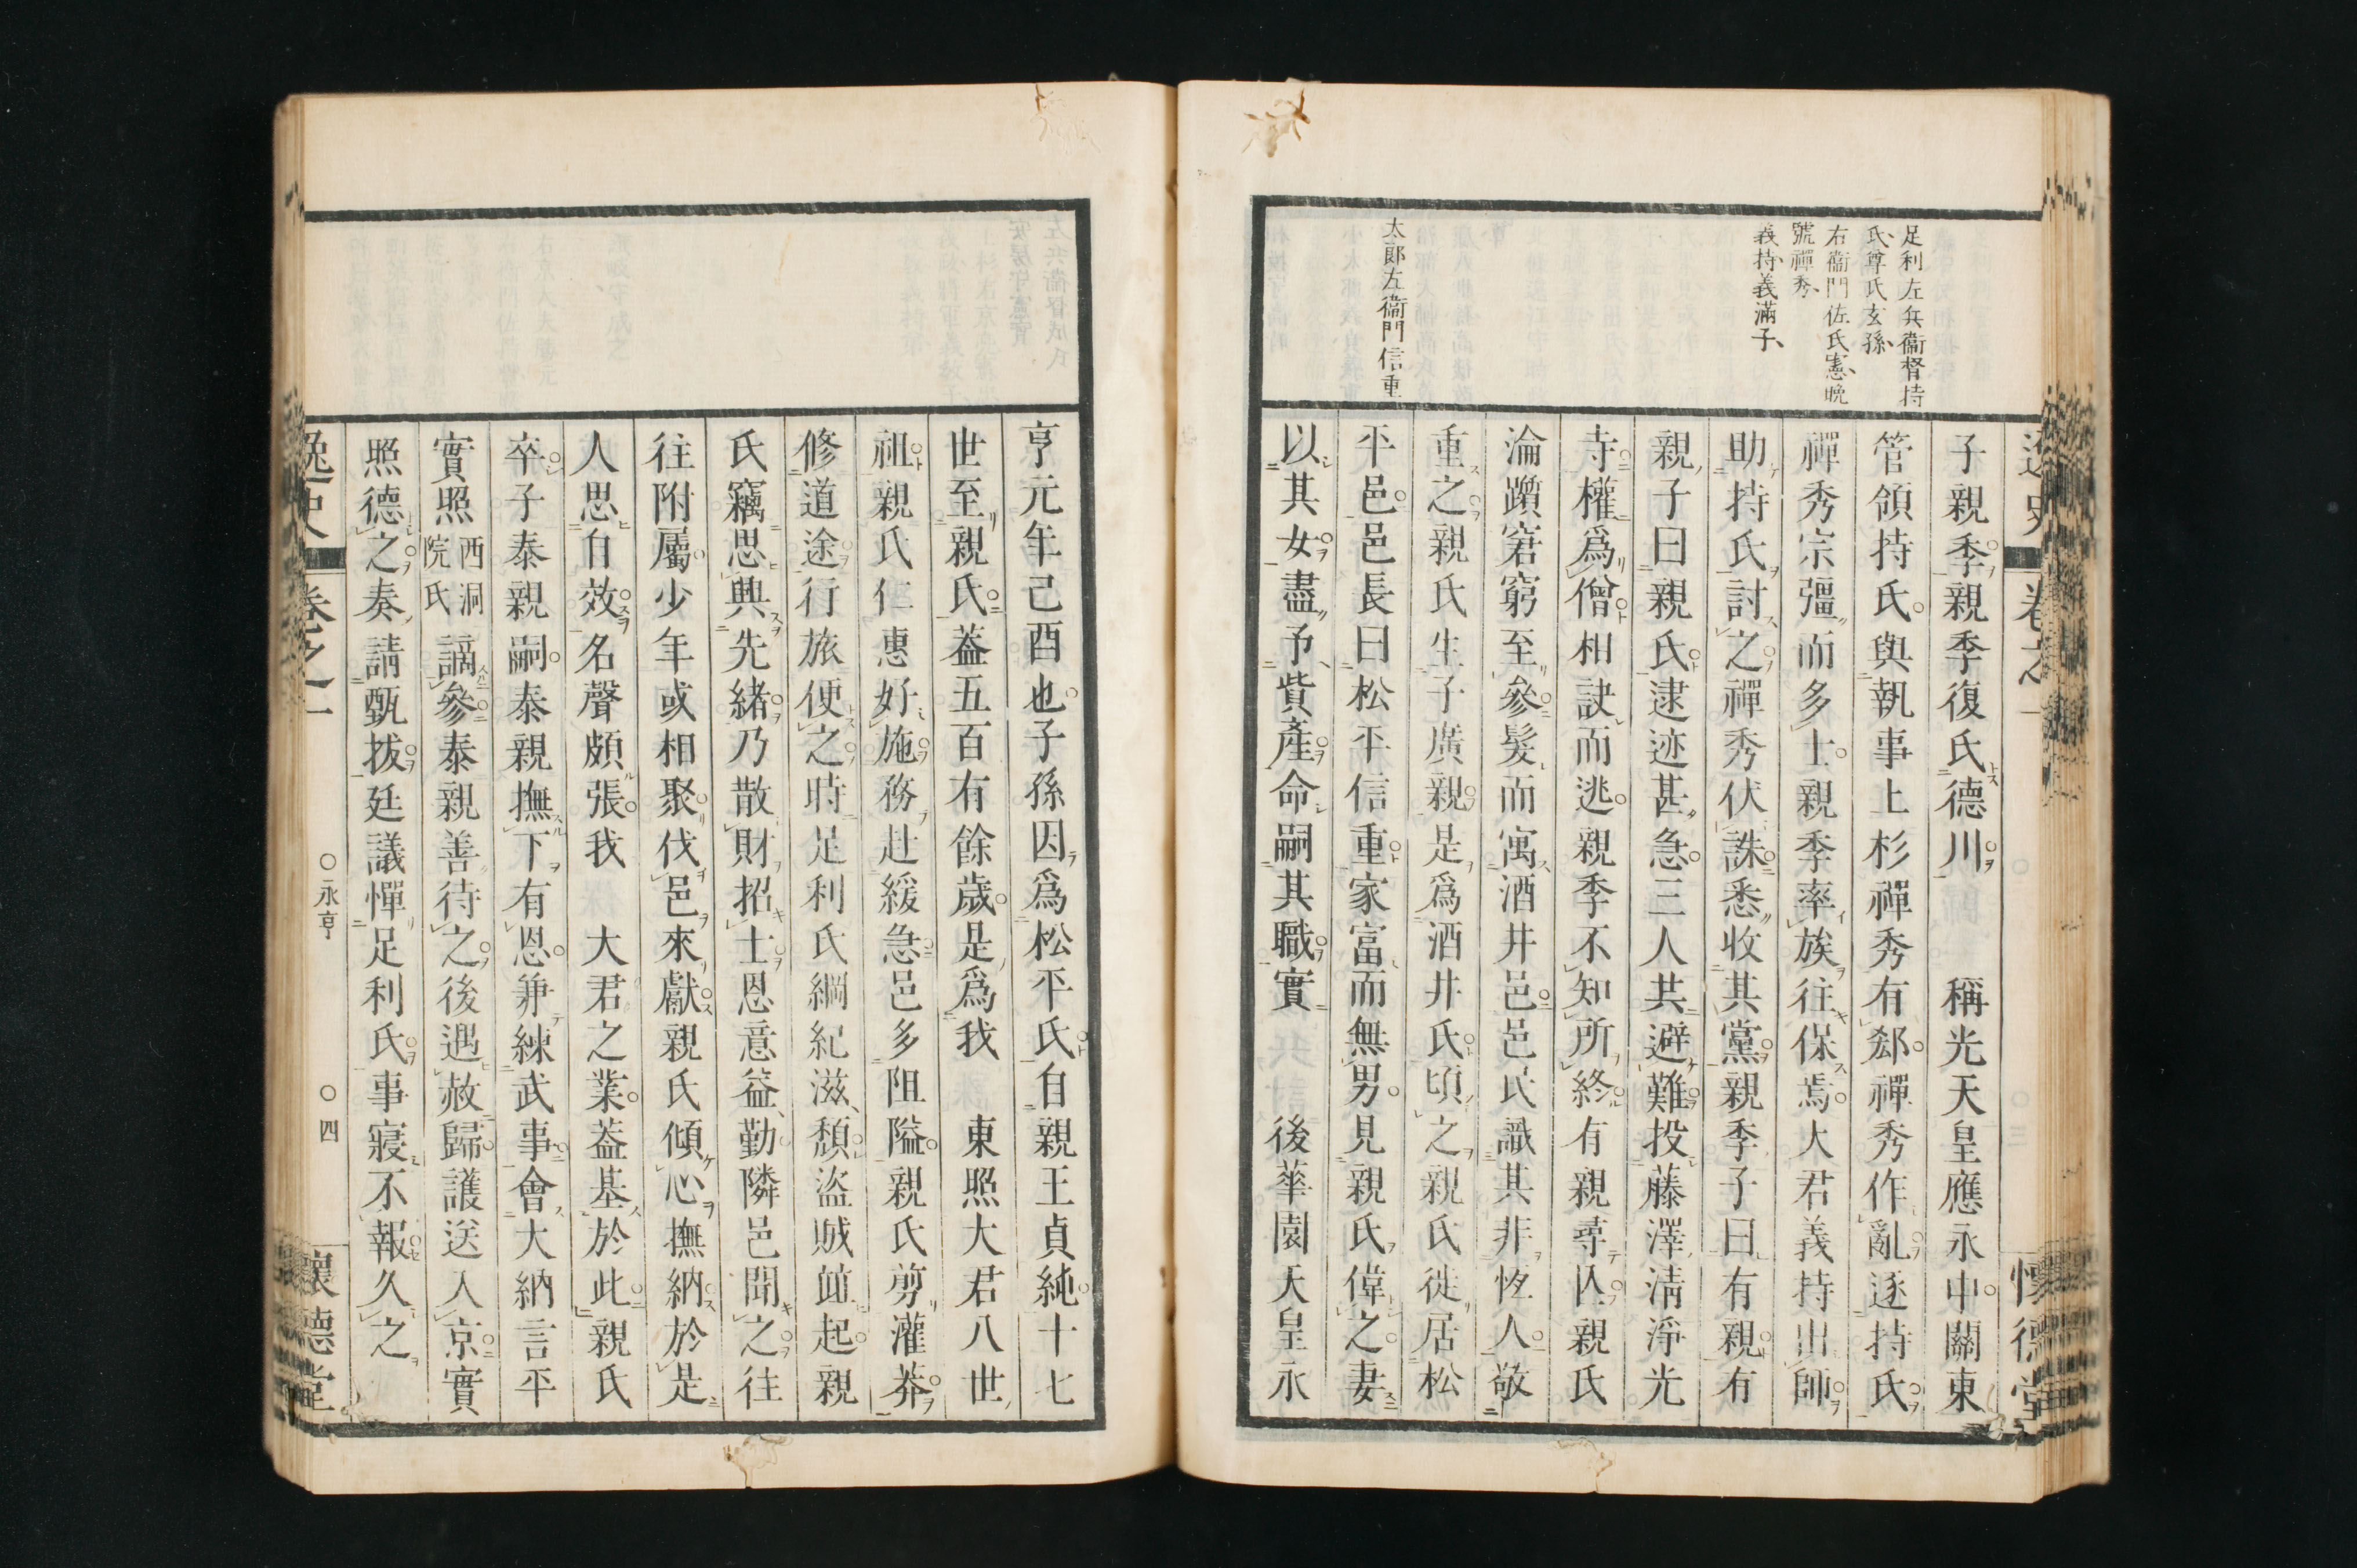 足利左兵衞督持
氏、尊氏玄孫、
右衞門佐氏憲、晩
號禪秀、
義持、義滿子、
太郎左衞門信重
子親季親季復氏德川 稱光天皇應永中關東
管領持氏與執事上杉禪秀有郄禪秀作亂逐持氏
禪秀宗彊而多士親季率族往保焉大君義持出師
助持氏討之禪秀伏誅悉收其黨親季子曰有親有
親子曰親氏逮迹甚急三人共避難投藤澤淸淨光
寺權爲僧相訣而逃親季不知所終有親尋亾親氏
淪躓窘窮至參髮而寓酒井邑邑民識其非恆人敬
重之親氏生子廣親是爲酒井氏頃之親氏徙居松
平邑邑長曰松平信重家富而無男見親氏偉之妻
以其女盡予貲產命嗣其職實 後華園天皇永
亨元年己酉也子孫因爲松平氏自親王貞純十七
世至親氏葢五百有餘歲是爲我 東照大君八世
祖親氏仁惠好施務赴緩急邑多阻隘親氏剪灌莽
修道途行旅便之時足利氏綱紀滋頽盜賊蝟起親
氏竊思興先緖乃散財招士恩意益勤隣邑聞之往
往附屬少年或相聚伐邑來獻親氏傾心撫納於是
人思自效名聲頗張我 大君之業葢基於此親氏
卒子泰親嗣泰親撫下有恩兼練武事會大納言平
實照西洞院氏謫參泰親善待之後遇赦歸護送入京實
照德之奏請甄拔廷議憚足利氏事寢不報久之
逸史 卷之一 ○永亨 ○四 懷德堂